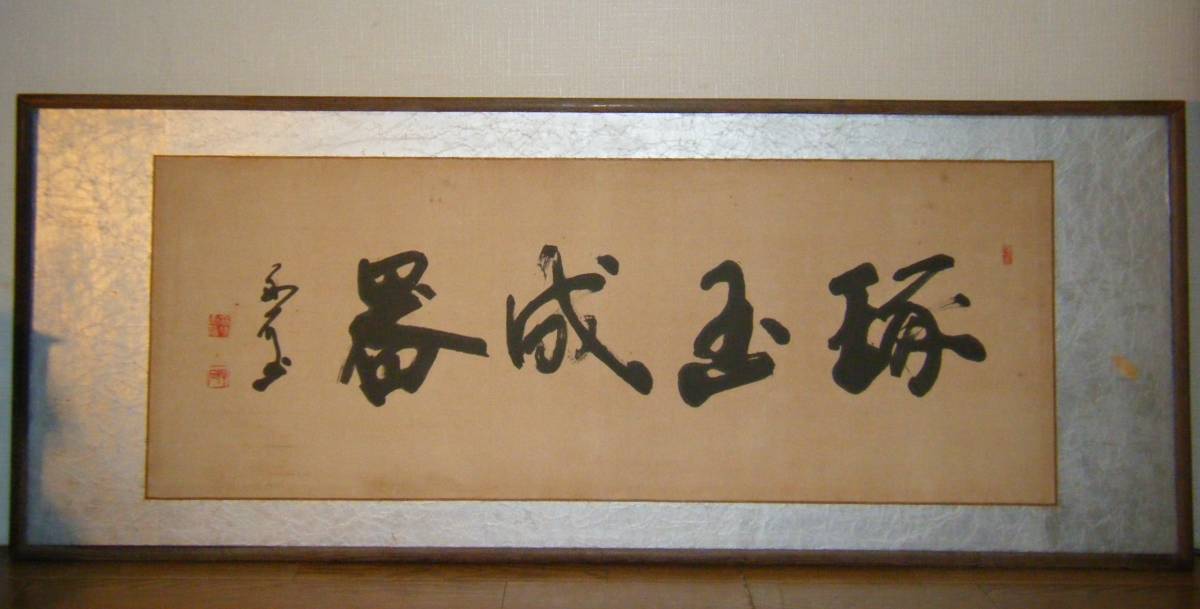 琢玉成器